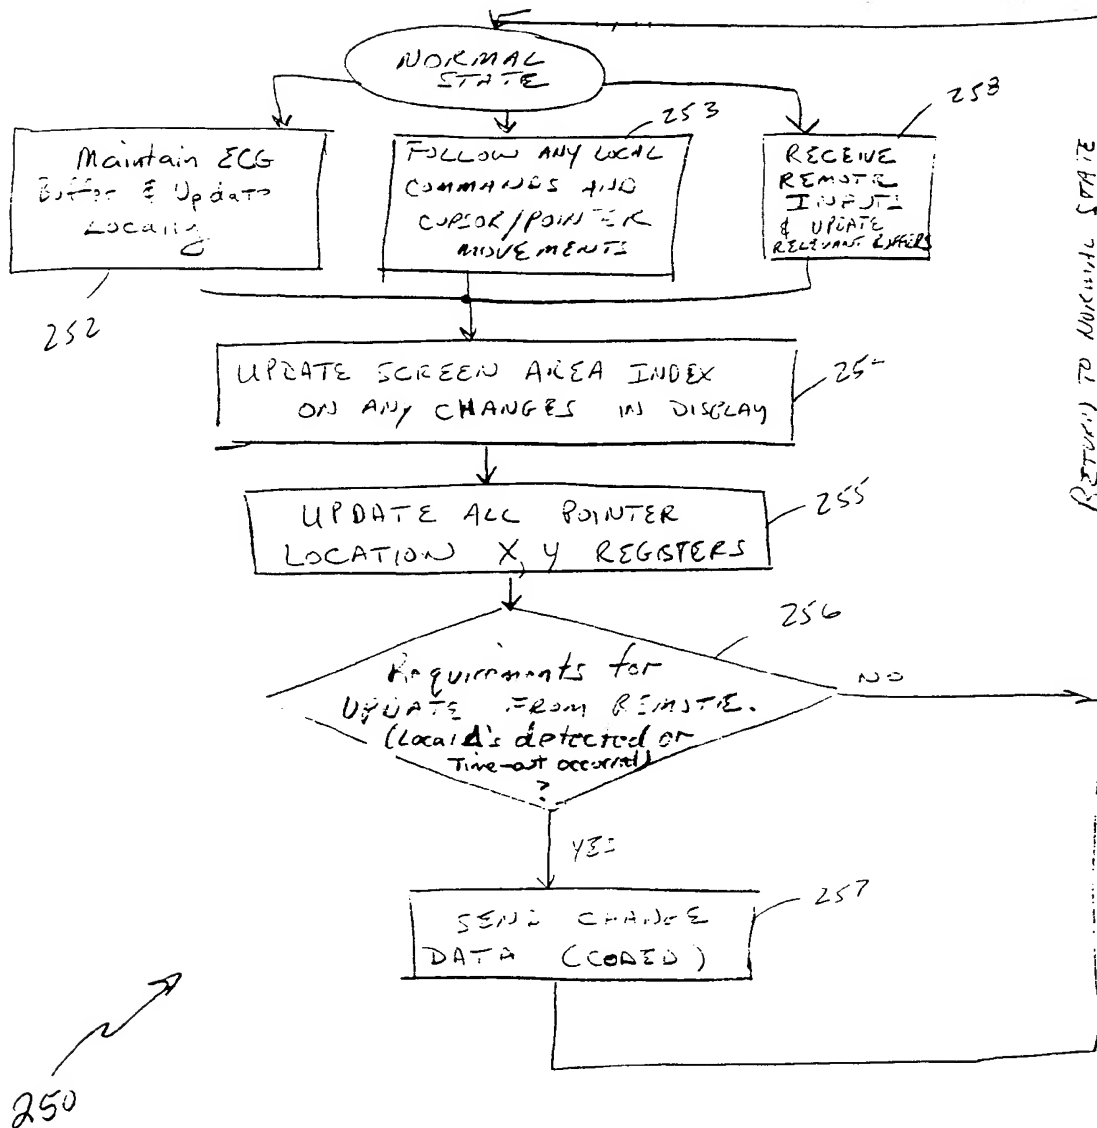 NORMAL
STATE
253
258
Maintain ECG
Buffer & Update
Locally
FOLLOW ANY LOCAL
COMMANDS AND
CURSOR/POINTER
MOVEMENTS
RECEIVE
REMOTE
INPUTS
& UPDATE
RELEVANT BUFFERS
252
UPDATE SCREEN AREA INDEX
ON ANY CHANGES IN DISPLAY
UPDATE ALL POINTER
LOCATION X,Y REGISTERS
255
256
Requirements for
UPDATE FROM REMOTE.
(Local Δ's detected or
Time-out occurred)
?
NO
YES
SEND CHANGE
DATA (CODED)
257
250
RETURN TO NORMAL STATE